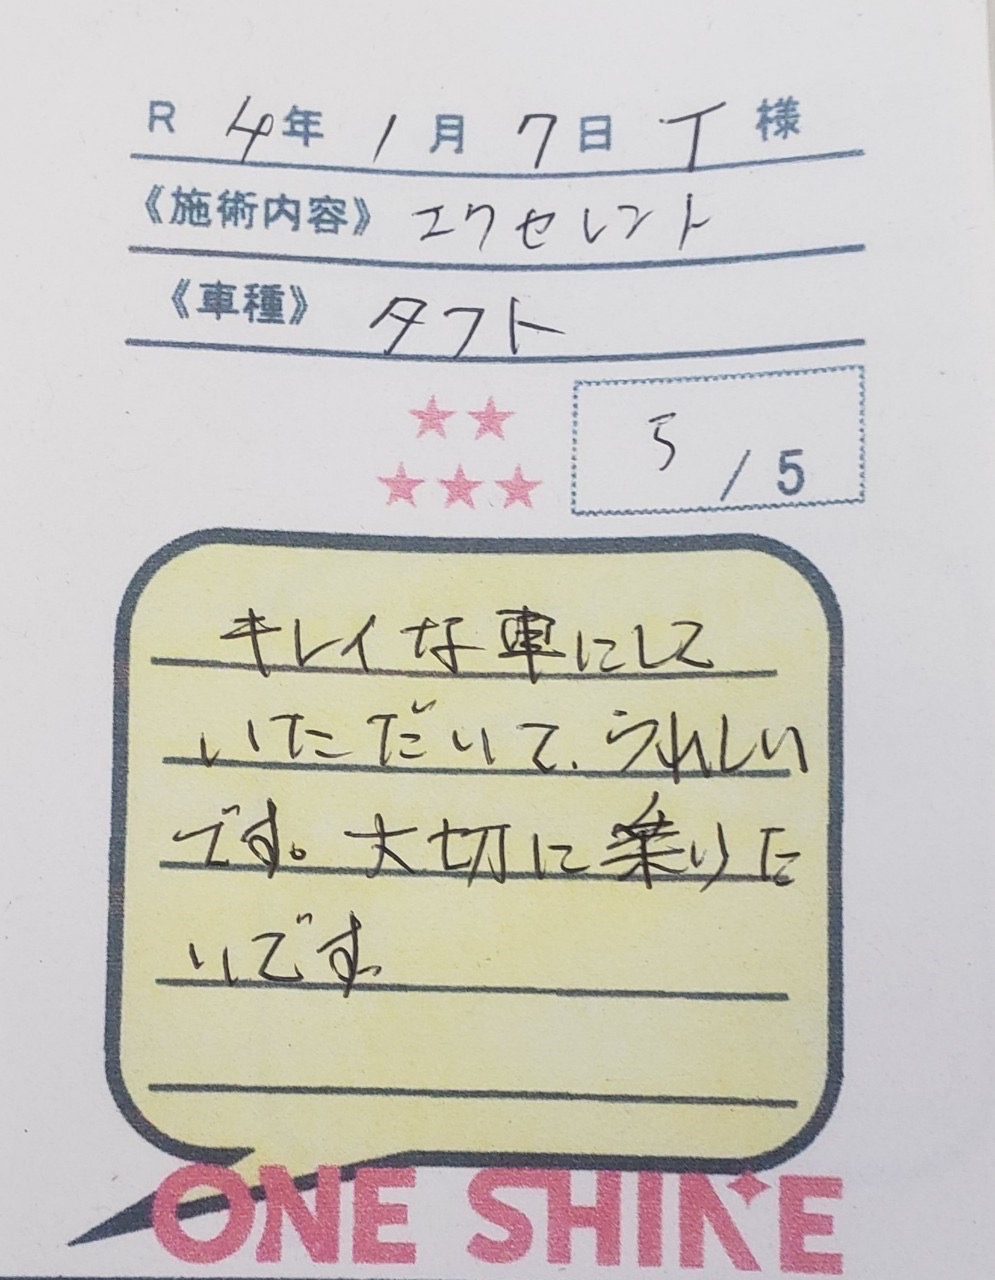 R 4年 1月 7日 T 様
《施術内容》 エクセレント
《車種》 タフト
5 / 5
キレイな車にして
いただいて、うれしい
です。大切に乗りた
いです
ONE SHINE